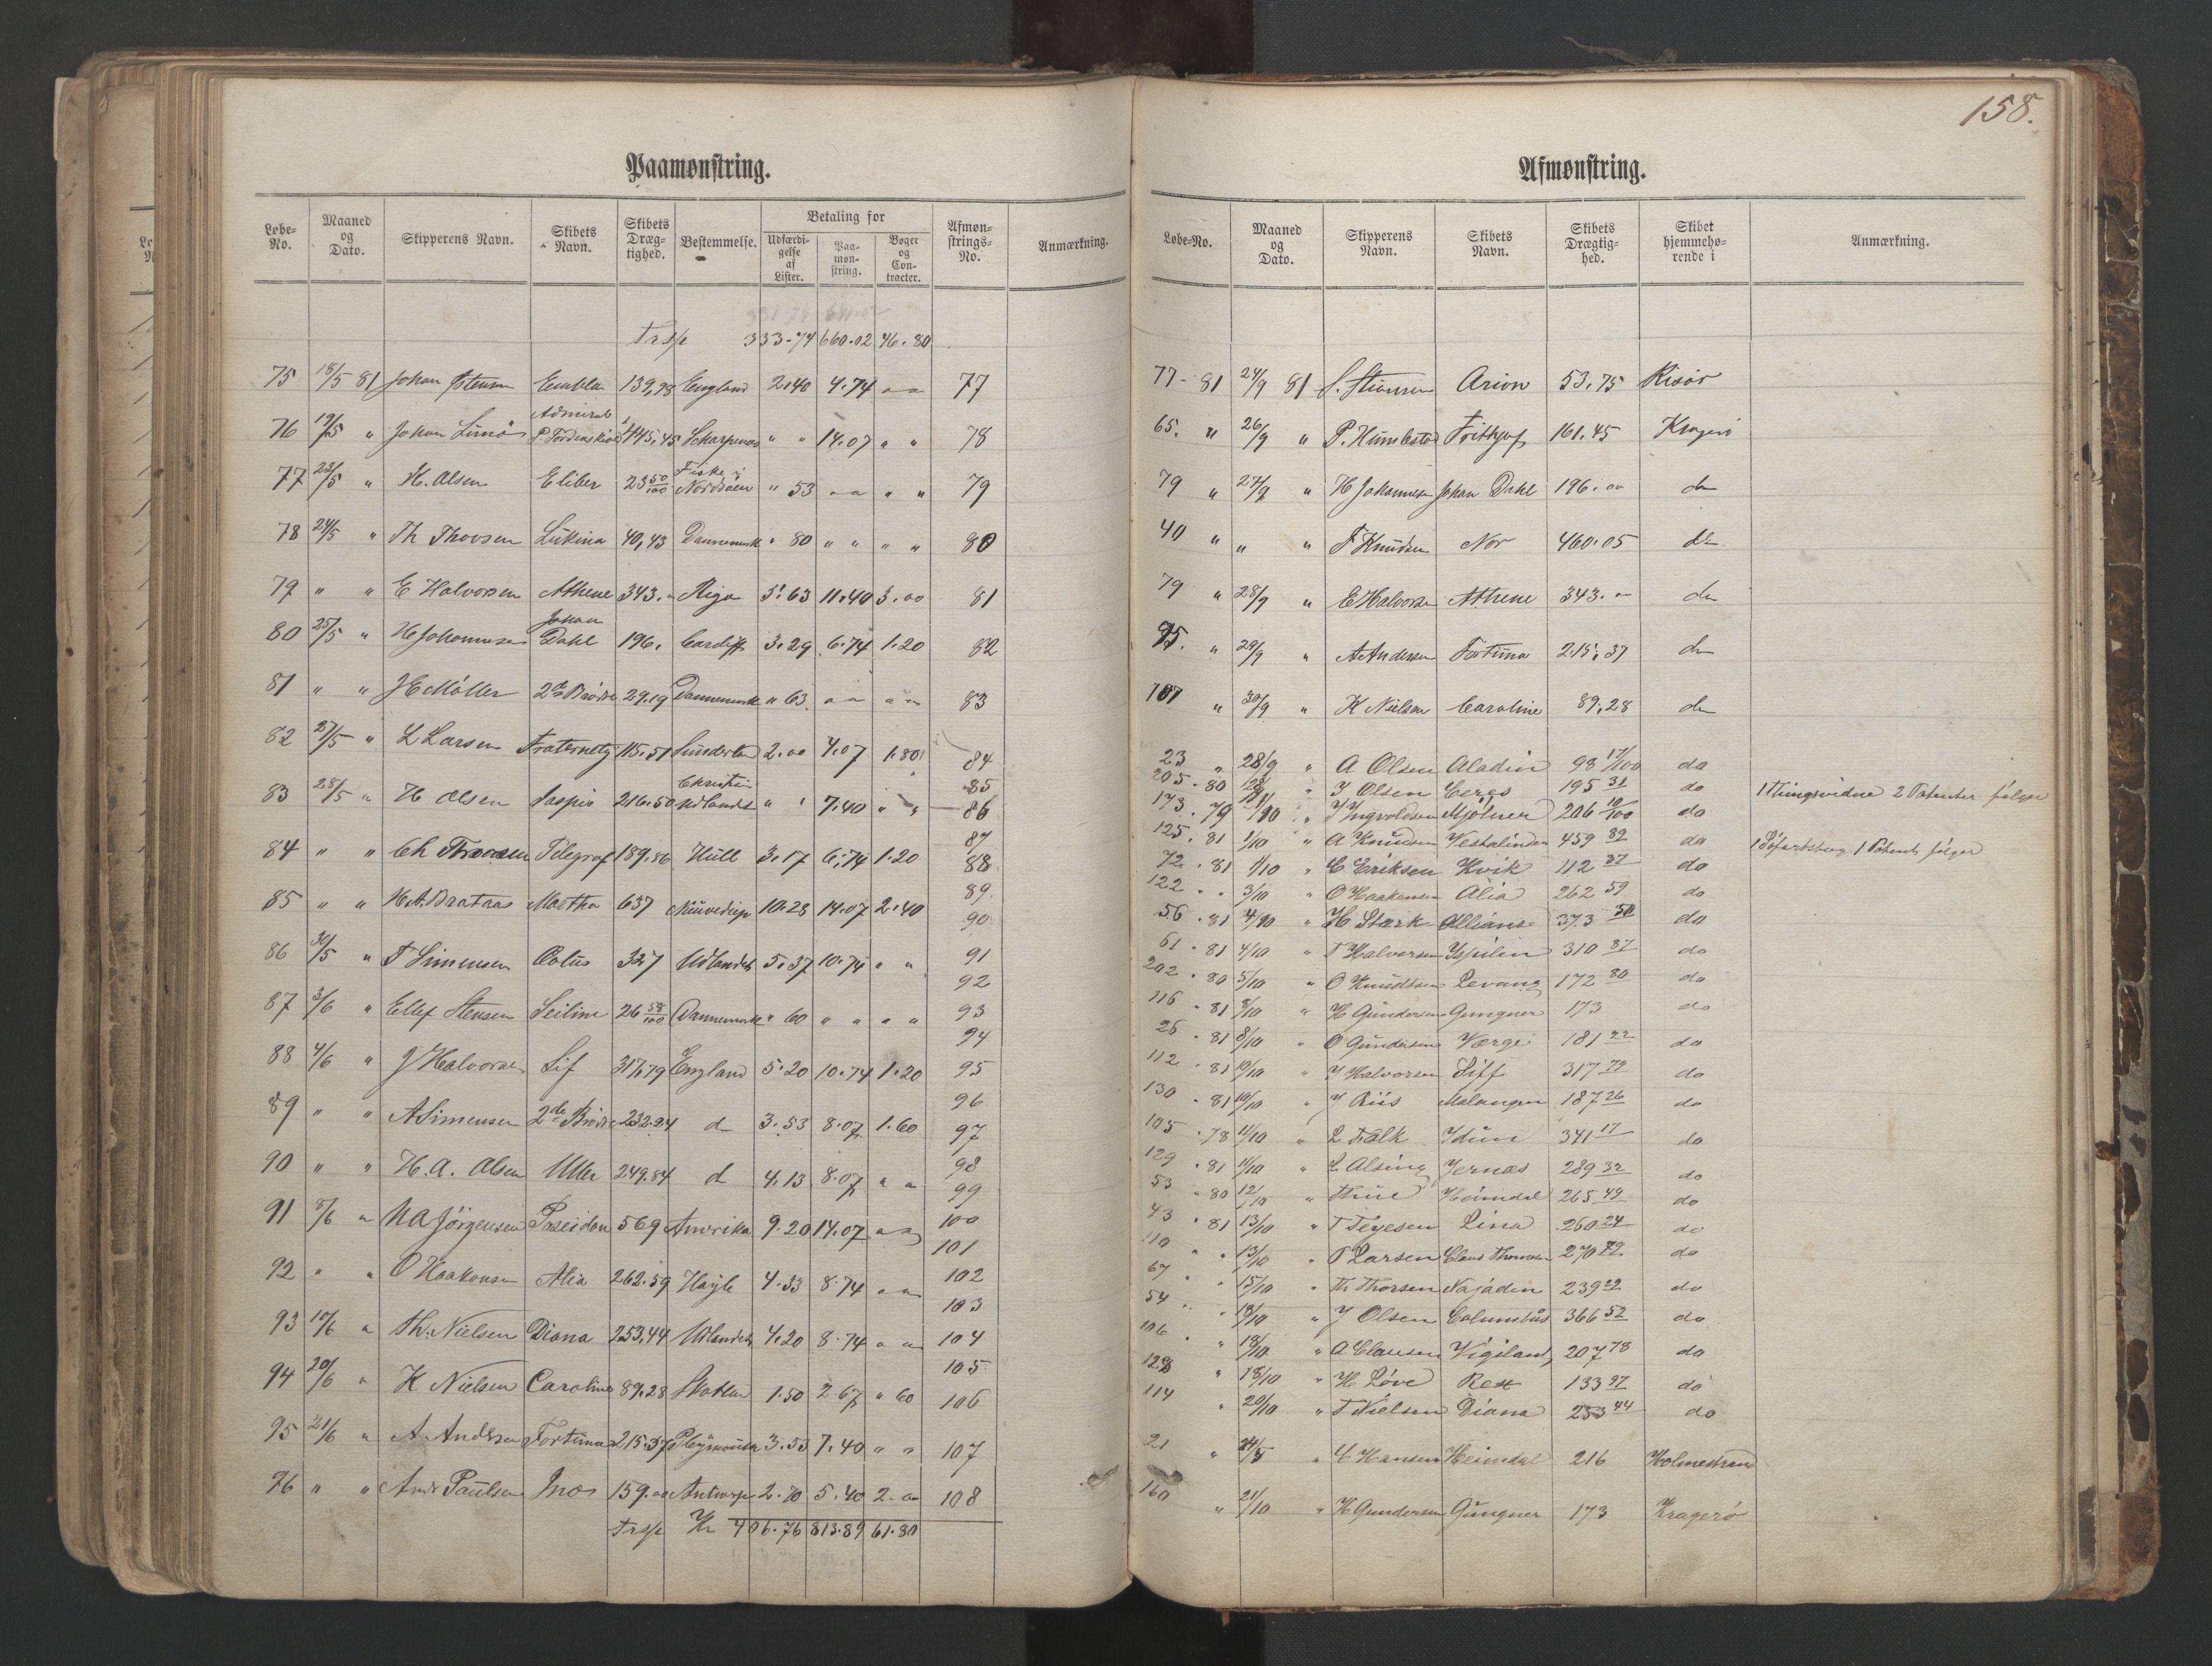 158.
Paamønstring.
Løbe-No. | Maaned og Dato. | Skipperens Navn. | Skibets Navn. | Skibets Dræg-tighed. | Bestemmelse. | Betaling for | Udfærdi-gelse af Lister. | Paa-møn-string. | Bøger og Con-tracter. | Afmøn-strings-No. | Anmærkning.
Trsp 333.74 660.02 46.80
75 18/5 81 Johan Embla 139,98 England 2.40 4.74 " " 77
76 19/5 " Johan Admiral P. Tordenskiold 145,45 " " 14.07 " " 78
77 23/5 " H. Olsen Eliber 23 50/100 Fiske i Nordsøen " 53 " " " " 79
78 24/5 " Th Thorsen Lukina 40,43 Dannemark " 80 " " " " 80
79 " " E Halvorsen Athene 343. " Riga 5.63 11.40 3.00 81
80 25/5 " H Johannesen Johan Dahl 196. Cardiff 3.29 6.74 1.20 82
81 " " J E Møller 2de Brødre 29.19 Dannemark " 63 " " " " 83
82 27/5 " L Larsen Fraternety 115.51 Sunderland 2.00 4.07 1.80 84
85
83 28/5 " H Olsen Jaspis 216.50 Udlandet " " 7.40 " " 86
87
84 " " Ch Thorsen Telegraf 189.86 Hull 3.17 6.74 1.20 88
89
85 " " H. A. Brataas Martha 637 10.28 14.07 2.40 90
86 30/5 " T Simensen 327 Udlandet 5.37 10.74 " " 91
92
87 3/6 " Ellef Stensen Seiline 26 58/100 Dannemark " 60 " " " " 93
94
88 4/6 " J Halvorsen Lif 317.79 England 5.20 10.74 1.20 95
96
89 " " A Simensen 2de Brødre 232.94 d 3.53 8.07 1.60 97
98
90 " " H. A. Olsen Uller 249.84 d 4.13 8.07 " " 99
91 8/6 " N A Jörgensen Poseidon 569 Amerika 9.20 14.07 " " 100
101
92 " " O Haakonsen Alia 262.59 Hayle 4.33 8.74 " " 102
103
93 10/6 " Th. Nielsen Diana 253,44 Udlandet 4.20 8.74 " " 104
105
94 20/6 " K Nielsen Caroline 89.28 Skotland 1.50 2.67 " 60 106
95 21/6 " A Andersen Fortuna 215.37 Plymouth 3.53 7.40 " " 107
96 " " Paulsen 159.00 Antwerpen 2.70 5.40 2.00 108
Trsp Kr 406.76 813.89 61.80
Afmønstring.
Løbe-No. | Maaned og Dato. | Skipperens Navn. | Skibets Navn. | Skibets Drægtig-hed. | Skibet hjemmehø-rende i | Anmærkning.
77 - 81 24/9 81 Arion 53.75 Risør
65. " 26/9 " P. Humlestad Frithjof 161.45 Kragerö
79 " 27/9 " H Johannesen Johan Dahl 196. " do
40 " " " T Knudsen Nor 460.05 do
79 " 28/9 " E Halvorsen Athene 343. " do
95. " 29/9 " A Andersen Fortuna 215,37 do
107 " 30/9 " K Nielsen Caroline 89,28 do
23 " 28/9 " A Olsen Aladin 98 17/100 do
205 . 80 " J Olsen Ceres 195 31 do 1 Thingsvidne 2 Patenter følger
173 . 79 1/10 " J Ingvoldsen Mjölner 206 10/100 do
125 . 81 1/10 " A Knudsen Vestalinden 459 82 do 1 Patent følger
72 . 81 1/10 " C Eriksen Kvik 112 37 do
122 " " 3/10 " O Haakonsen Alia 262 59 do
56 . 81 4/10 " H Stærk Allianse 373 50 do
61 . 81 4/10 " T Halvorsen 310 87 do
202 . 80 5/10 " O Knudtsen Levang 172 80 do
116 . 81 8/10 " H Gundersen Gungner 173 do
26 . 81 8/10 " O Gundersen Værge 181 22 do
112 . 81 10/10 " J Halvorsen Liff 317 79 do
130 . 81 10/10 " J Riis Malangen 187 26 do
105 . 78 11/10 " L Falk Idun 341 17 do
129 . 81 11/10 " L Alsing Jernæs 289 32 do
53 . 80 12/10 " Thue Heimdal 265 49 do
43 . 81 13/10 " T Teyesen Lina 260 24 do
110 " " 13/10 " T Larsen Claus Thomsen 270 72 do
67 " " 15/10 " Th Thorsen Najaden 239 29 do
54 " " 18/10 " J Olsen Columbus 366 52 do
106 " " 18/10 " A Clausen Vigilant 207 78 do
128 " 18/10 " H Löve Rest 133 97 do
114 " 20/10 " T Nielsen Diana 253 44 do
21 " " C Hansen Heimdal 216 Holmestrand
160 " 21/10 " H Gundersen Gungner 173 Kragerö